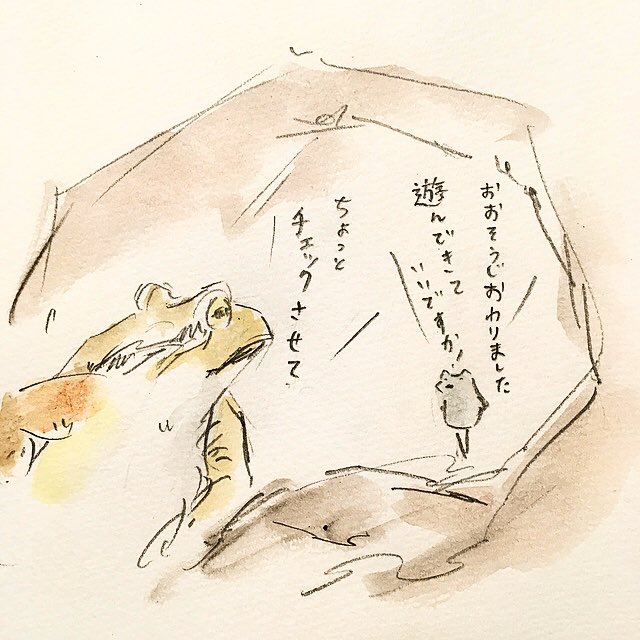 おおそうじおわりました
遊んできて
いいですか！
ちょっと
チェックさせて